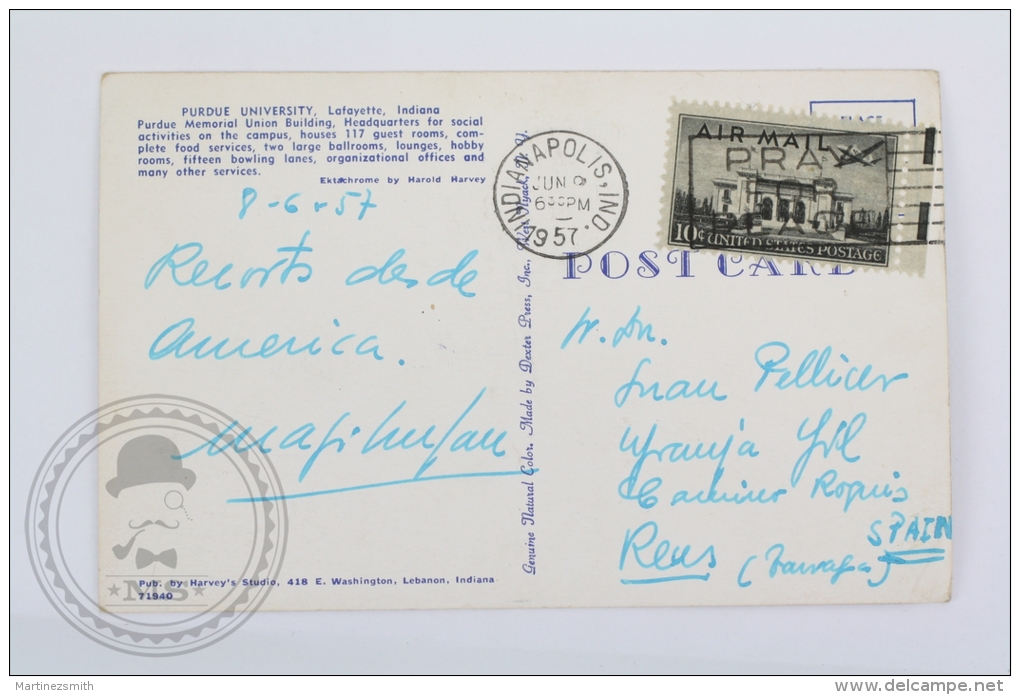 PURDUE UNIVERSITY, Lafayette, Indiana
Purdue Memorial Union Building, Headquarters for social
activities on the campus, houses 117 guest rooms, com-
plete food services, two large ballrooms, lounges, hobby
rooms, fifteen bowling lanes, organizational offices and
many other services.
Ektachrome by Harold Harvey
8-6-57
Recorts desde
America.
Pub. by Harvey's Studio, 418 E. Washington, Lebanon, Indiana
71940
Genuine Natural Color. Made by Dexter Press, Inc., West Nyack, N. Y.
INDIANAPOLIS, IND.
JUN
630PM
1957
AIR MAIL
PRAY
10¢ UNITED STATES POSTAGE
POST CARD
Sr. Dn.
Juan Pellicer
Granja Gil
Camino Roquis
Reus (Tarragona)
SPAIN
MS
Martinezsmith
delcampe.net